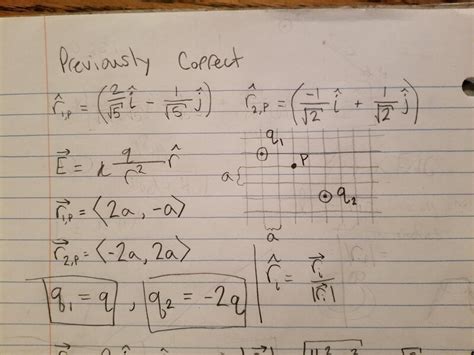 Previously Correct
r̂₁,p = (2/√5 î - 1/√5 ĵ) r̂₂,p = (-1/√2 î + 1/√2 ĵ)
q₁
E⃗ = k q/r² r̂
P
a
q₂
r⃗₁,p = ⟨2a, -a⟩
a
r⃗₂,p = ⟨-2a, 2a⟩
r̂ᵢ = r⃗ᵢ/|r⃗ᵢ|
q₁ = q , q₂ = -2q